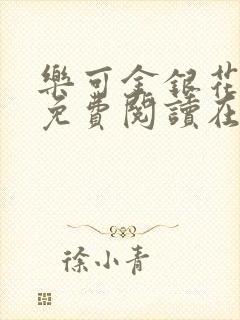 樂可金銀花
免費閱讀在
徐小青